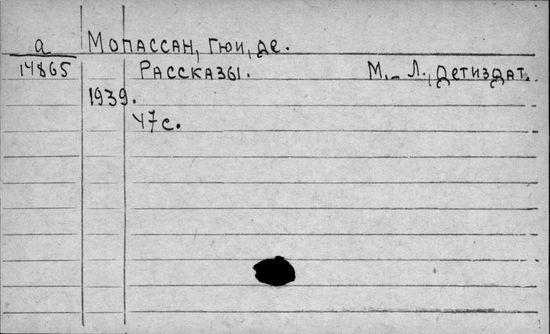 а МОПАССАН, ГЮИ, ДЕ.
14865 РАССКАЗЫ. М.-Л., ДЕТИЗДАТ.
1939.
47с.